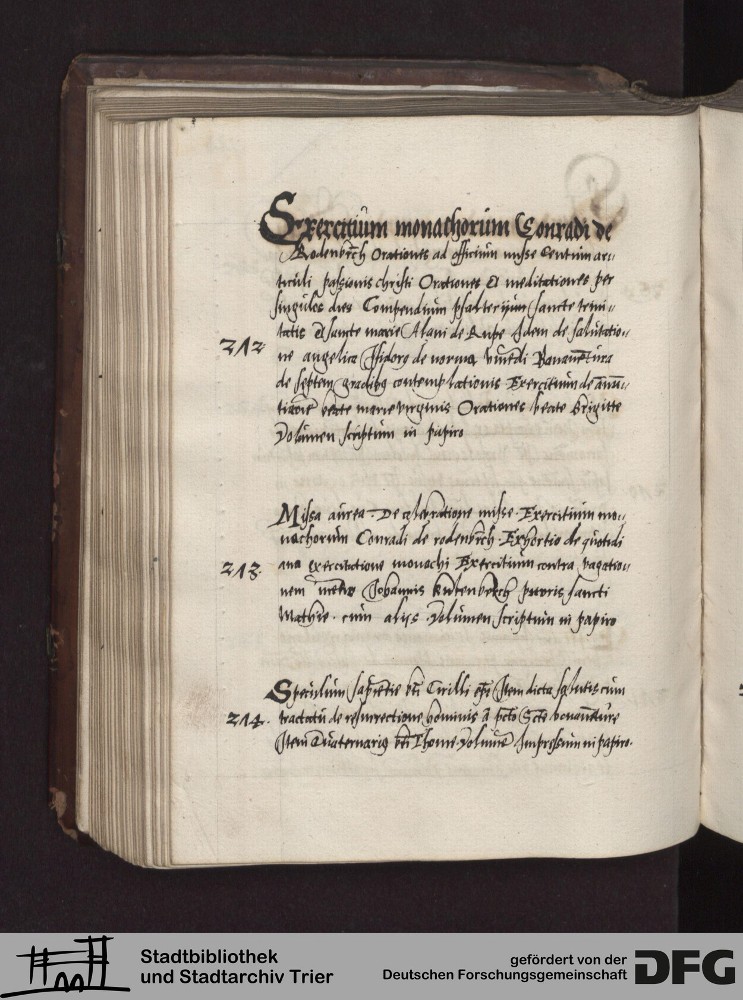 Exercitium monachorum Conradi de
Rodenbrch Orationes ad officium misse Centum ar-
ticuli passionis christi Orationes et meditationes per
singulos dies Compendium psalterium sancte trini-
tatis et sancte marie Alani de Rupe Idem de salutatio-
212
ne angelica Isidorus de norma viuendi Bonauentura
de septem gradibus contemplationis Exercitium de annu-
beate marie virginis Orationes beate Brigitte
Volumen scriptum in papiro
Missa aurea. De celebratione misse. Exercitium mo-
nachorum Conradi de rodenbrch. Exhortio de quotidi
213.
ana exercitatione monachi Exercitium contra vagatio-
nem Johannis Kutenbrch prioris sancti
Mathie. cum alijs. Volumen scriptum in papiro
Speculum sapientie bti Cirilli epi Item dicta salutis cum
214.
tractatu de resurrectione hominis a peccato Scti bonauenture
Item Quaternarius bti Thome. Volumen Impressum in papiro.
Stadtbibliothek
und Stadtarchiv Trier
gefördert von der
Deutschen Forschungsgemeinschaft
DFG